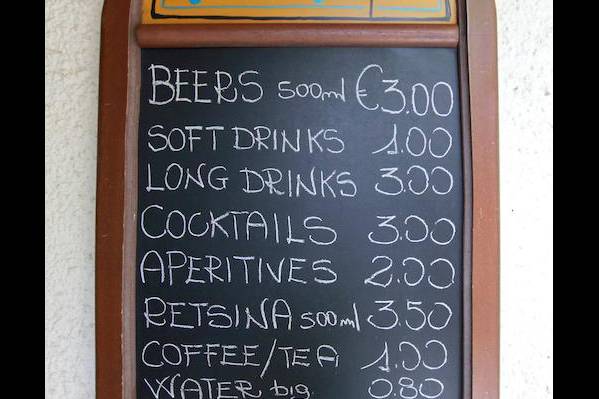 BEERS 500ml €3.00
SOFT DRINKS 1.00
LONG DRINKS 3.00
COCKTAILS 3.00
APERITIVES 2.00
RETSINA 500ml 3.50
COFFEE/TEA 1.00
WATER big 0.80